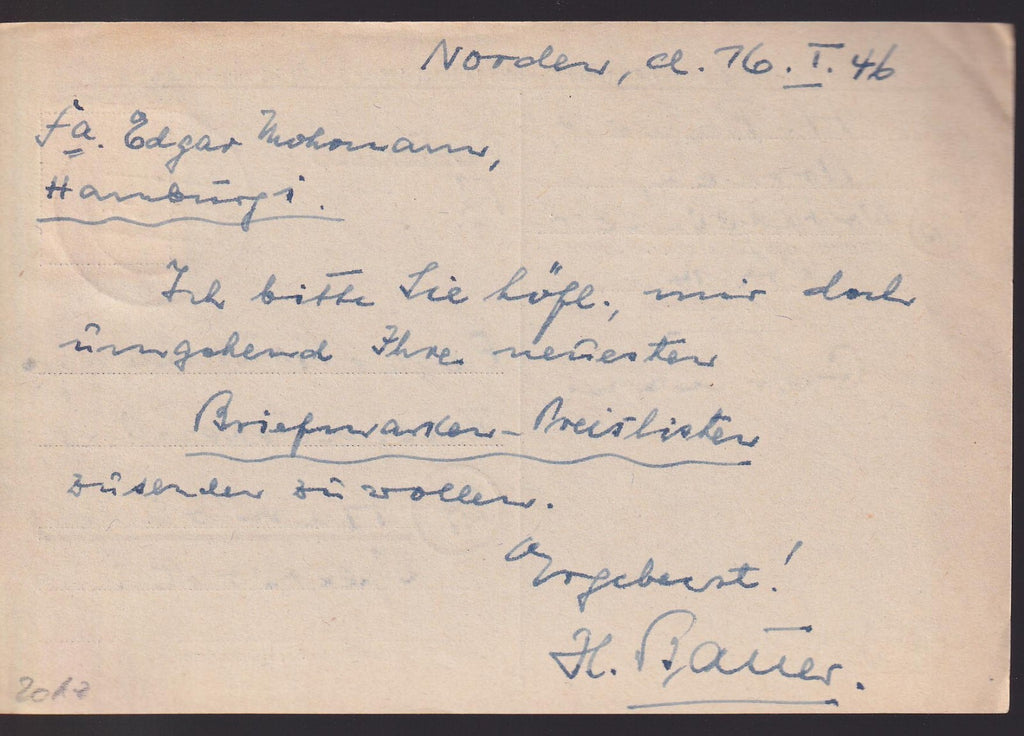 Norden, d. 16. I. 46
Fa. Edgar Mohrmann,
Hamburg 1.
Ich bitte Sie höfl., mir doch
umgehend Ihre neuesten
Briefmarken-Preislisten
zusenden zu wollen.
Ergebenst!
H. Bauer.